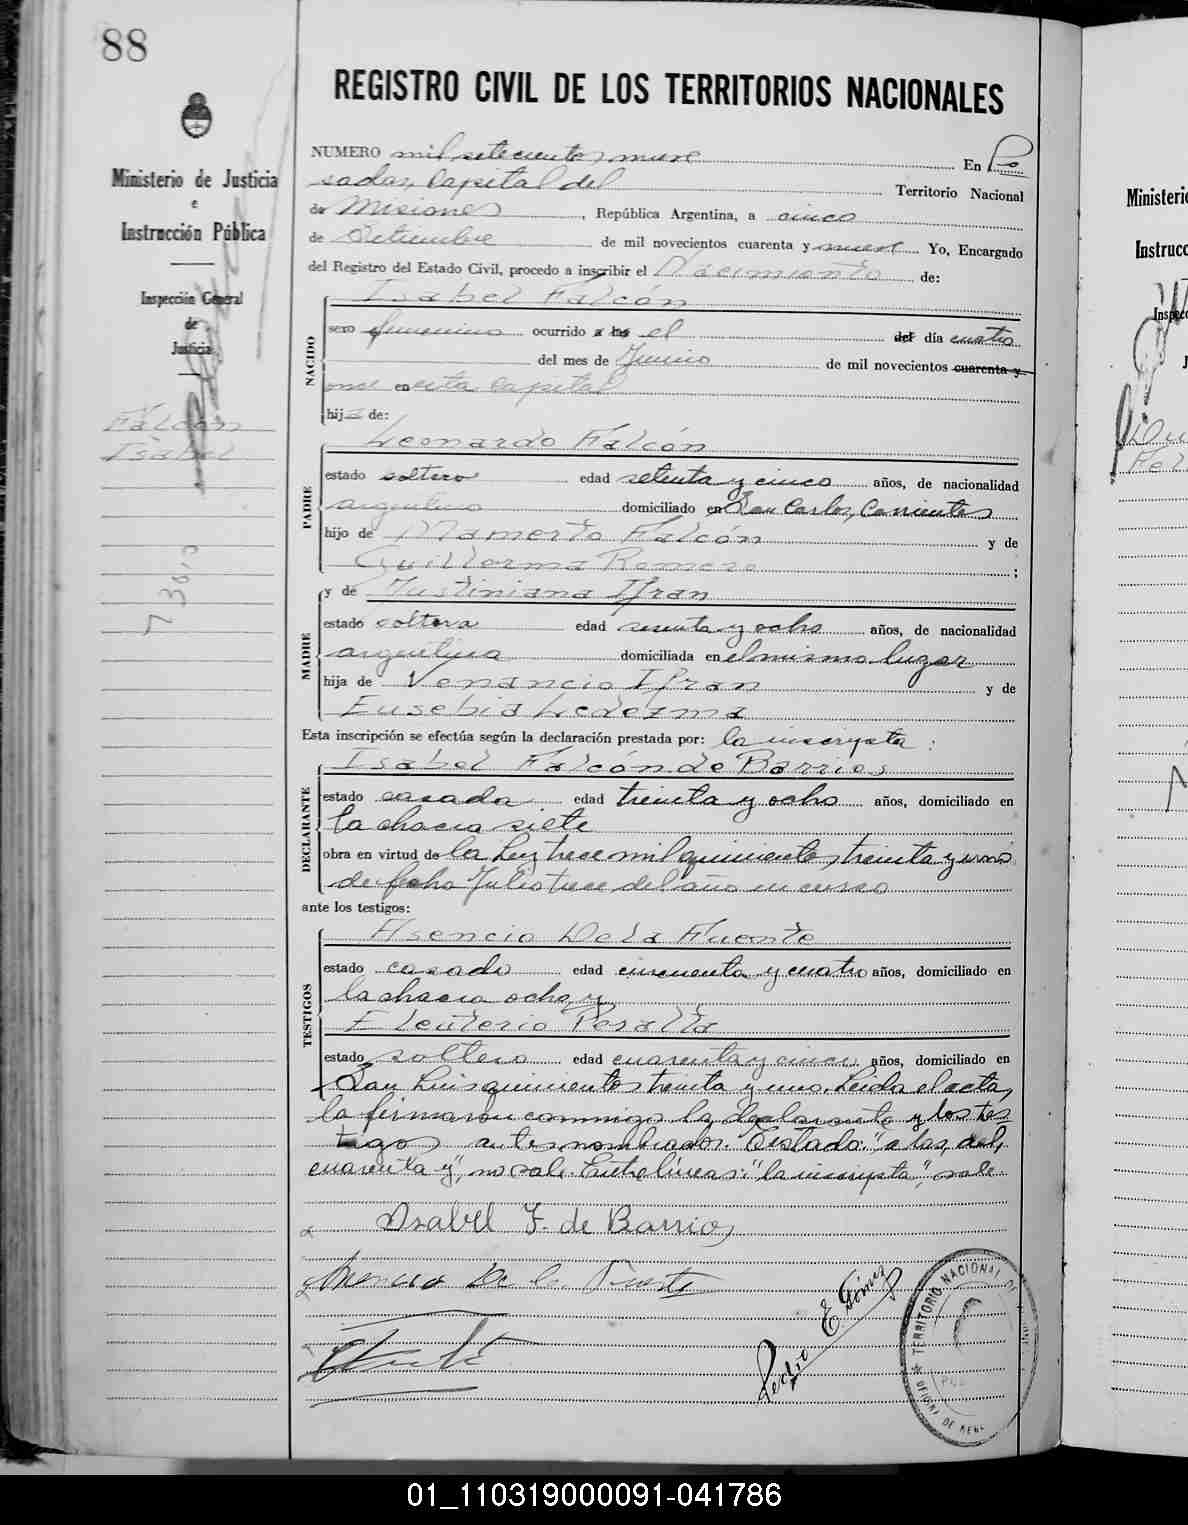 88
Ministerio de Justicia
e
Instrucción Pública
Inspección General
de
Justicia
Falcón
Isabel
REGISTRO CIVIL DE LOS TERRITORIOS NACIONALES
NUMERO mil setecientos nueve En Po
sadas, Capital del Territorio Nacional
de Misiones, República Argentina, a cinco
de Setiembre de mil novecientos cuarenta y nueve Yo, Encargado
del Registro del Estado Civil, procedo a inscribir el Nacimiento de:
Isabel Falcón
NACIDO
sexo femenino ocurrido a las el del día cuatro
del mes de Junio de mil novecientos cuarenta y
once en esta Capital
hija de:
Leonardo Falcón
PADRE
estado soltero edad setenta y cinco años, de nacionalidad
argentino domiciliado en San Carlos, Corrientes
hijo de Mamerto Falcón y de
Guillerma Romero ;
y de Justiniana Ifran
MADRE
estado soltera edad sesenta y ocho años, de nacionalidad
argentina domiciliada en el mismo lugar
hija de Venancio Ifran y de
Eusebia Ledezma
Esta inscripción se efectúa según la declaración prestada por: la inscripta:
Isabel Falcón de Barrios
DECLARANTE
estado casada edad treinta y ocho años, domiciliado en
la chacra siete
obra en virtud de la Ley trece mil quinientos treinta y uno
de fecha Julio trece del año en curso
ante los testigos:
Asencio De la Fuente
TESTIGOS
estado casado edad cincuenta y cuatro años, domiciliado en
la chacra ocho y
Eleuterio Peralta
estado soltero edad cuarenta y cinco años, domiciliado en
San Luis quinientos treinta y uno. Leida el acta,
la firmaron conmigo la declarante y los tes
tigos antes nombrados. Testado: "a las, del,
cuarenta y", no vale. Entre líneas: "la inscripta", vale
Isabel F. de Barrios
Asencio De la Fuente
Pedro E. Gómez
TERRITORIO NACIONAL DE
Ministerio
Instrucc
Inspecc
J
01_110319000091-041786